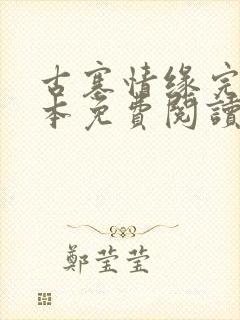 古寨情缘完
本免費閱讀
鄭莹莹